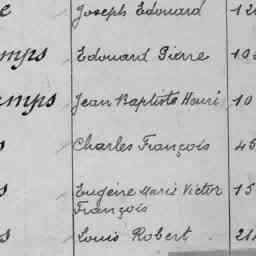 e Joseph Edouard 12
mps Edouard Pierre 10
amps Jean Baptiste Henri 10
s Charles François 45
s Eugène Marie Victor 15
François
s Louis Robert 21